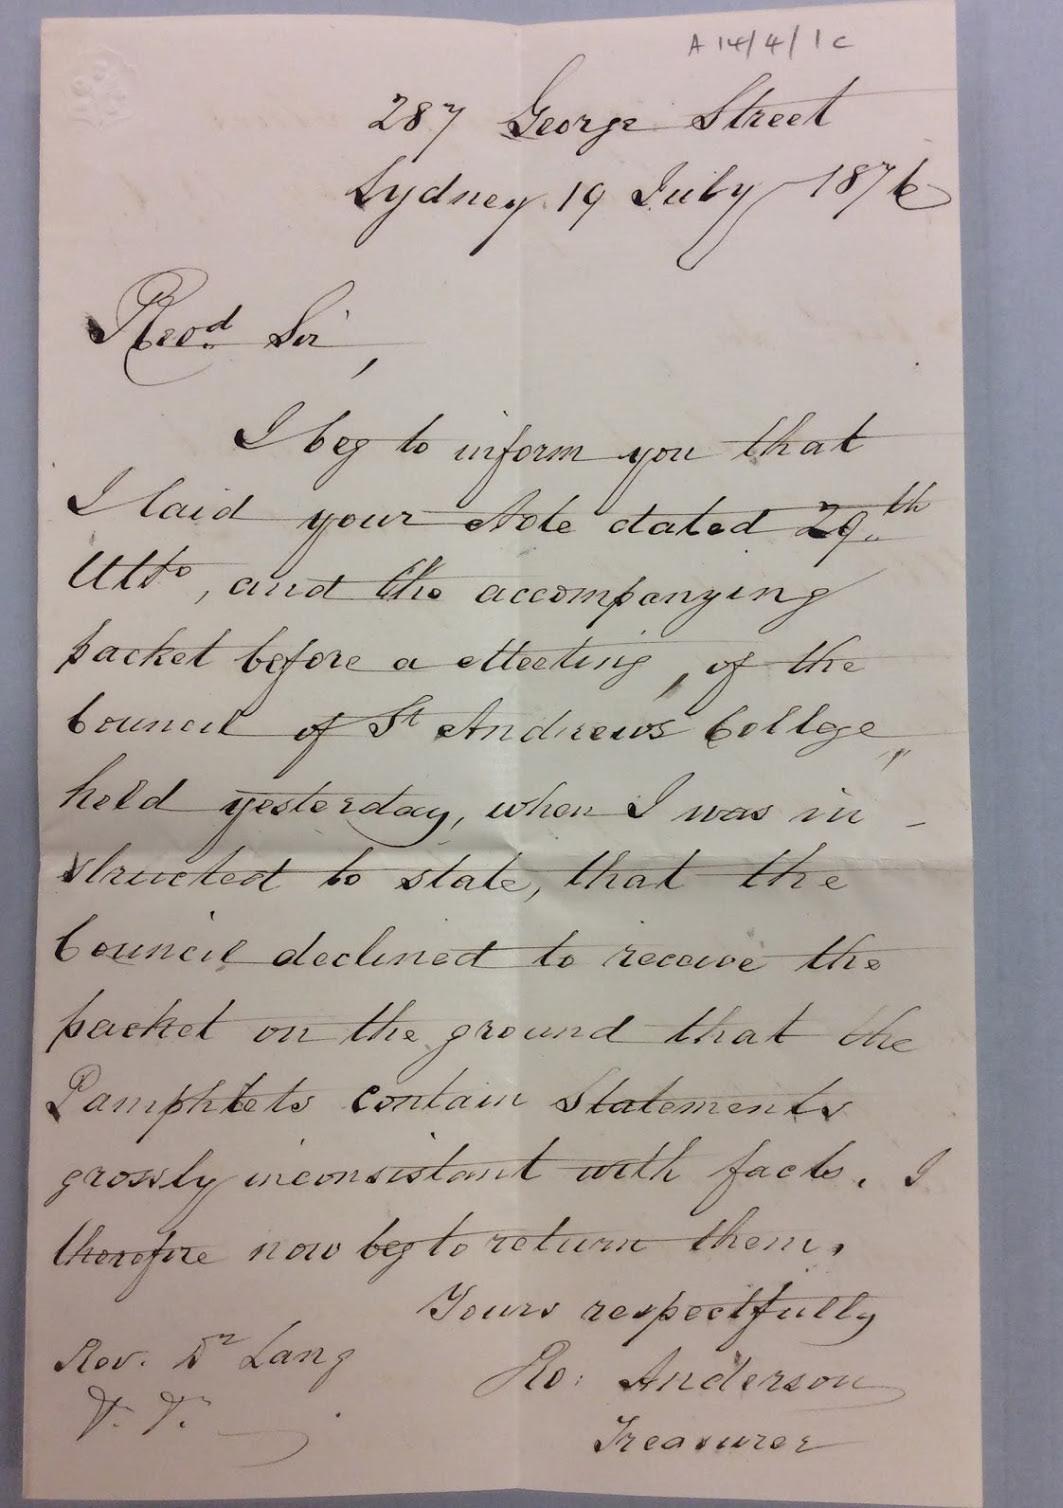 A 14/4/1c
287 George Street
Sydney 19 July 1876
Revd Sir,
I beg to inform you that
I laid your Note dated 29th
Ulto, and the accompanying
packet before a Meeting, of the
Council of St Andrew's College,
held yesterday, when I was in-
structed to state, that the
Council declined to receive the
packet on the ground that the
Pamphlets contain Statements
grossly inconsistant with facts. I
therefore now beg to return them.
Yours respectfully
Ro: Anderson
Treasurer
Rev. Dr Lang